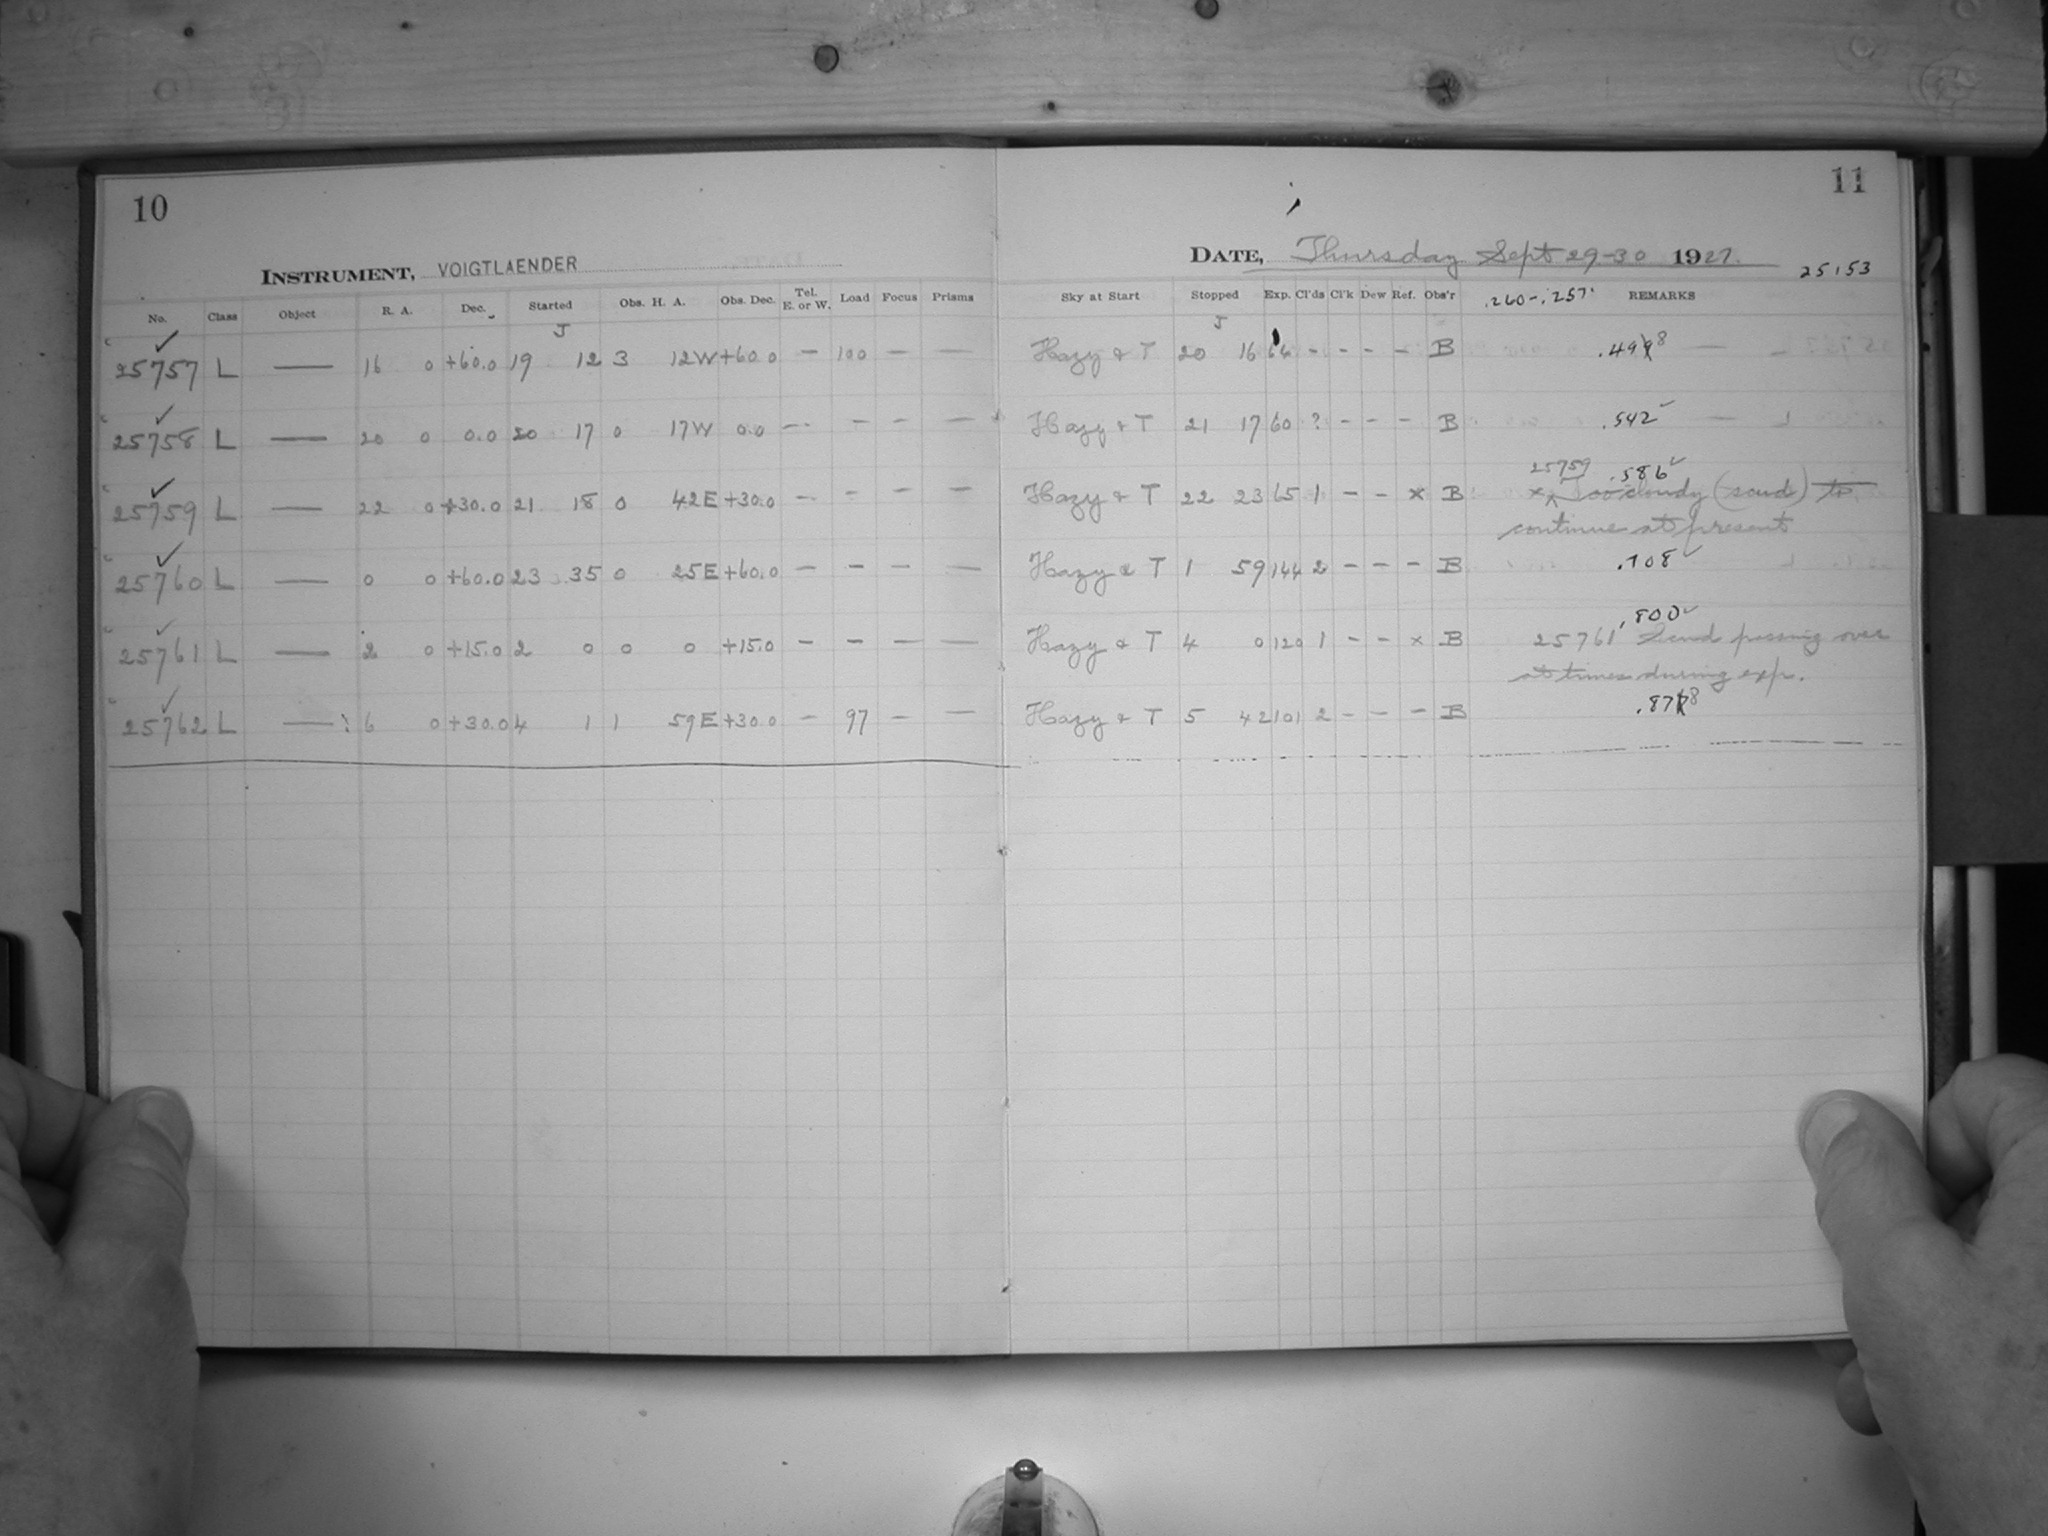 10
INSTRUMENT, VOIGTLAENDER
No. Class Object R. A. Dec. Started Obs. H. A. Obs. Dec. Tel. E. or W. Load Focus Prisms
J
25757 L — 16 0 +60.0 19 12 3 12W +60.0 — 100 — —
25758 L — 20 0 0.0 20 17 0 17W 0.0 — — — —
25759 L — 22 0 +30.0 21 18 0 42E +30.0 — — — —
25760 L — 0 0 +60.0 23 35 0 25E +60.0 — — — —
25761 L — 2 0 +15.0 2 0 0 0 +15.0 — — — —
25762 L — 6 0 +30.0 4 1 1 59E +30.0 — 97 — —
11
DATE, Thursday Sept 29-30 1927.
25153
Sky at Start Stopped Exp. Cl'ds Cl'k Dew Ref. Obs'r .260-.257 REMARKS
J
Hazy & T 20 16 64 - - - - B .498
Hazy & T 21 17 60 ? - - - B .542 ✓
25759 .586 ✓
Hazy & T 22 23 65 1 - - x B x Too cloudy (scud) to
continue at present
Hazy & T 1 59 144 2 - - - B .708 ✓
.800 ✓
Hazy & T 4 0 120 1 - - x B 25761 Scud passing over
at times during exp.
Hazy & T 5 42 101 2 - - - B .878